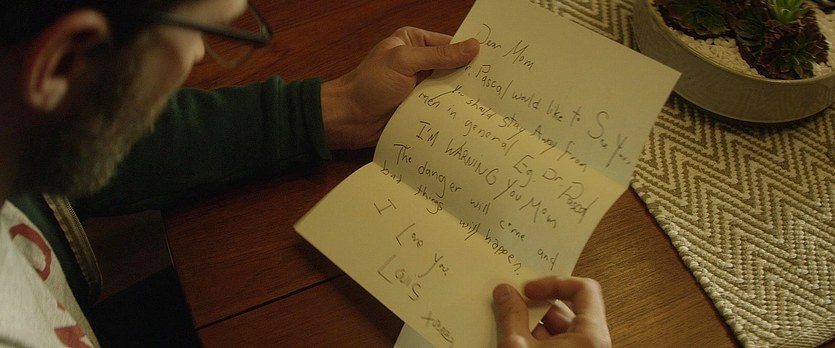 Dear Mom
r. Pascal would like to See You...
You should stay away from
men in general Eg Dr Pascal
I'M WARNING You Mom
The danger will come and
bad things will happen.
I Love You,
Louis xxxxx